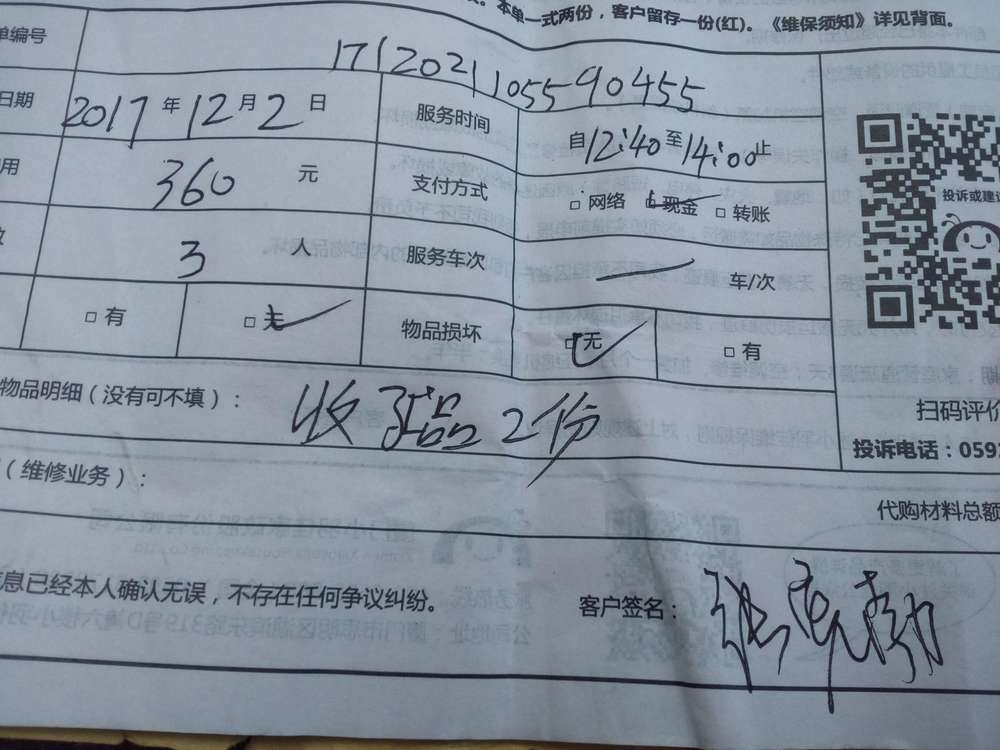 本单一式两份，客户留存一份(红)。《维保须知》详见背面。
单编号 1712021105590455
日期 2017年12月2日 服务时间 自12:40至14:00止
用 360 元 支付方式 □ 网络 □ 现金 □ 转账
数 3 人 服务车次 车/次
□ 有 □ 无 物品损坏 □ 无 □ 有
投诉或建议
扫码评价
投诉电话：0592
物品明细（没有可不填）： 收 2份
（维修业务）：
代购材料总额
息已经本人确认无误，不存在任何争议纠纷。
客户签名：